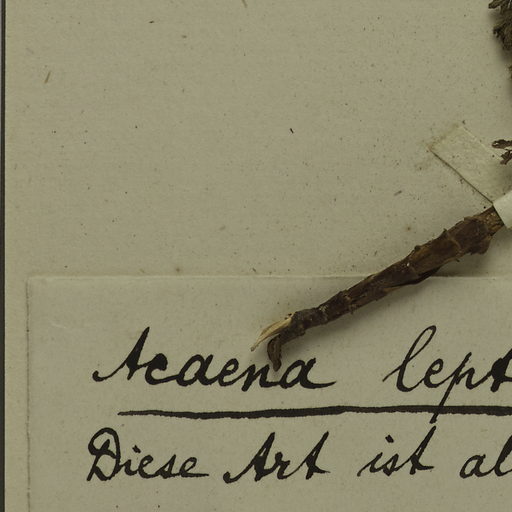 Acaena lept
Diese Art ist al